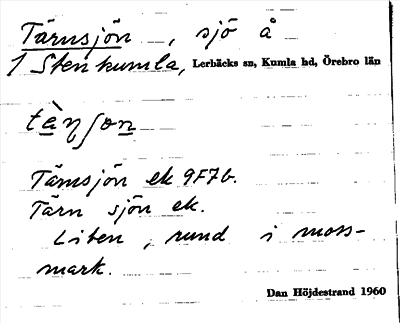 Tärnsjön, sjö å
1 Stenkumla, Lerbäcks sn, Kumla hd, Örebro län
tὲηʃon
Tärnsjön ek 9F7b.
Tärn sjön ek.
Liten, rund i moss-
mark.
Dan Höjdestrand 1960